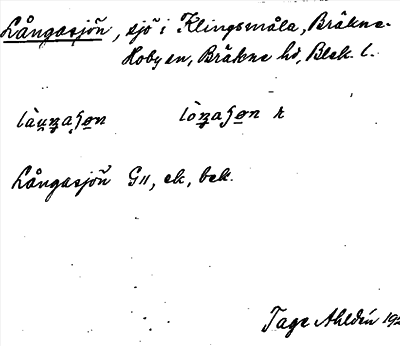 Långasjöñ, sjö i Klingsmåla, Bräkne-
Hoby sn, Bräkne hd, Blek. l.
Långasjöñ G11, ek, bek.
Tage Ahldén 192